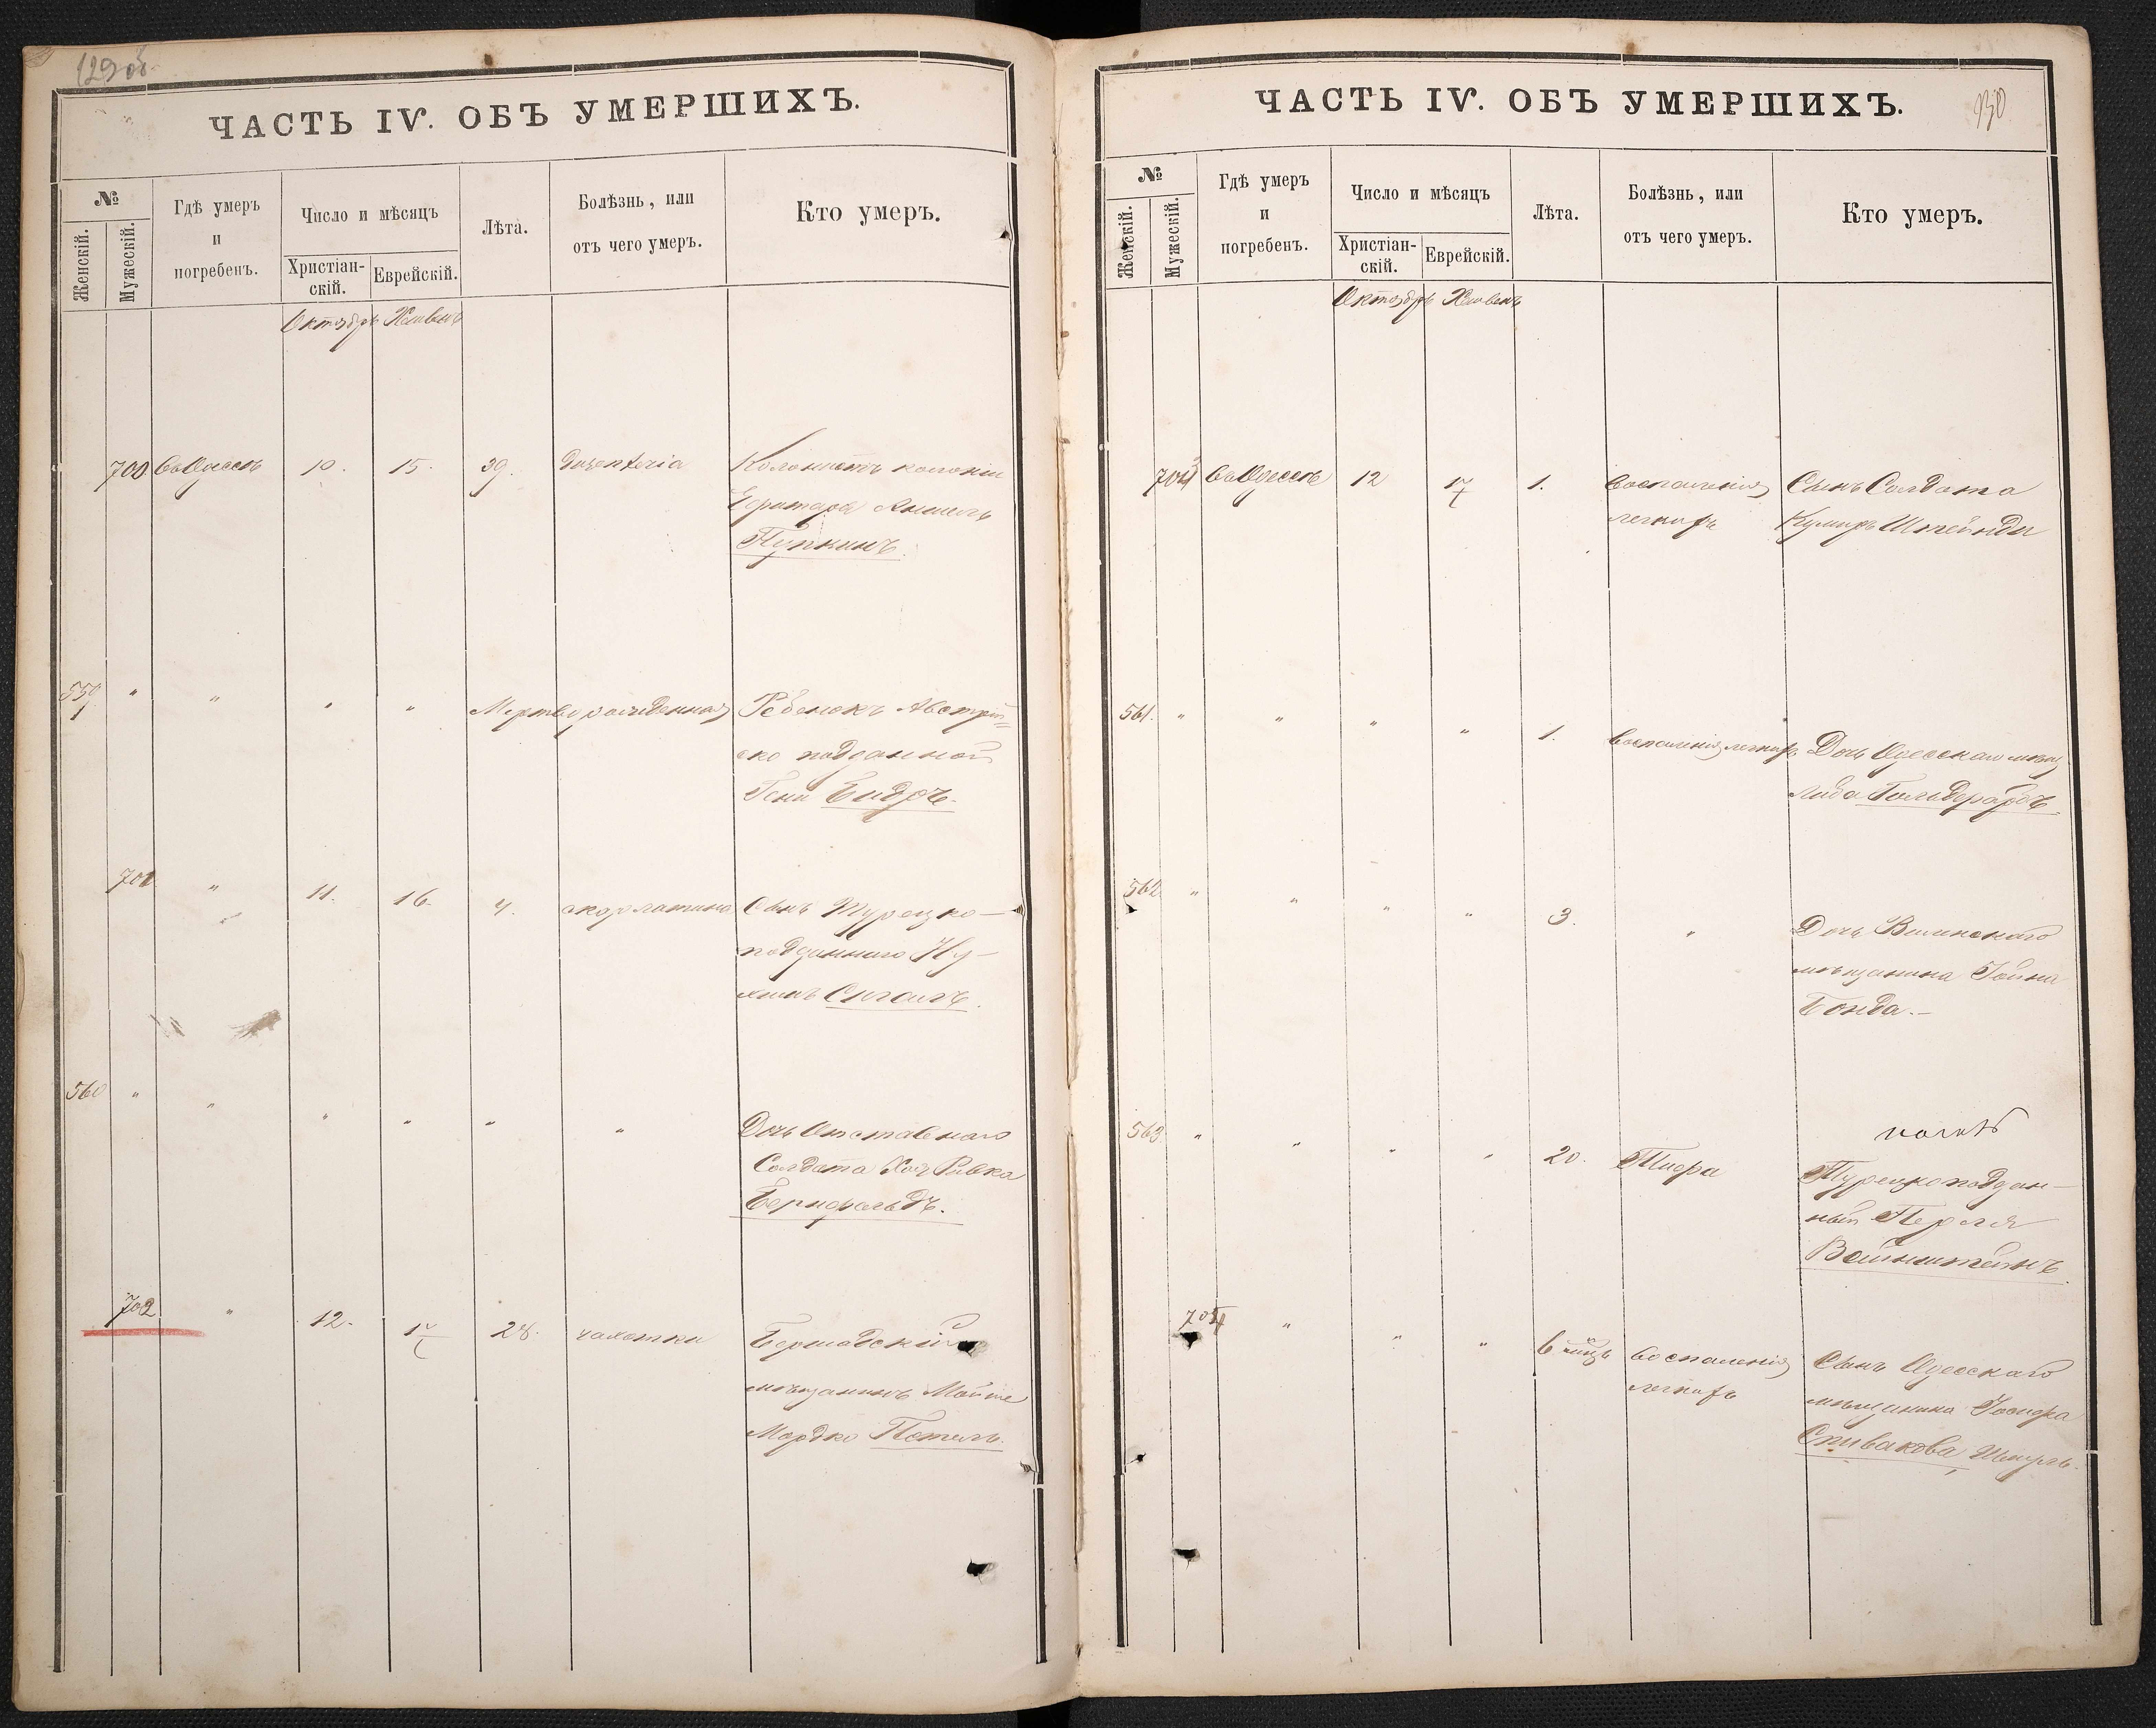 129 об.
ЧАСТЬ IV. ОБЪ УМЕРШИХЪ.
№
Женскій.
Мужескій.
Гдѣ умеръ
и
погребенъ.
Число и мѣсяцъ
Христіан-
скій.
Еврейскій.
Лѣта.
Болѣзнь, или
отъ чего умеръ.
Кто умеръ.
Октябрь Хешвенъ
700 въ Одессѣ 10. 15. 39. Колонистъ колоніи
Пупкинъ.
559 " " " " Мертворожденная Ребенокъ Австрій=
ско подданной
Гени Бидръ.
701 " 11. 16. 4. скорлатина Сынъ Турецко-
подданнаго Ну-
химъ Сигалъ.
560 " " " " " " Дочь Отставнаго
Солдата Хая Ривка
Бернфельдъ.
702 " 12. 17 28. чахотки Бершадскій
мѣщанинъ Мойше
Мордко Потель.
130
ЧАСТЬ IV. ОБЪ УМЕРШИХЪ.
№
Женскій.
Мужескій.
Гдѣ умеръ
и
погребенъ.
Число и мѣсяцъ
Христіан-
скій.
Еврейскій.
Лѣта.
Болѣзнь, или
отъ чего умеръ.
Кто умеръ.
Октябрь Хешвенъ
703 въ Одессѣ 12 17 1. воспаленія Сынъ Солдата
легкихъ
561. " " " " 1. воспаленія легкихъ Дочь Одесскаго мѣщ
Гольдфарбъ
562 " " " " 3. " Дочь Виленскаго
мѣщанина
Бонда.-
563 " " " " 20. Тифа
Турецкоподдан-
ный Перля
Вайнштейнъ.
704 " " " 6 мѣц воспаленія Сынъ Одесскаго
легкихъ мѣщанина Іосифа
Спивакова